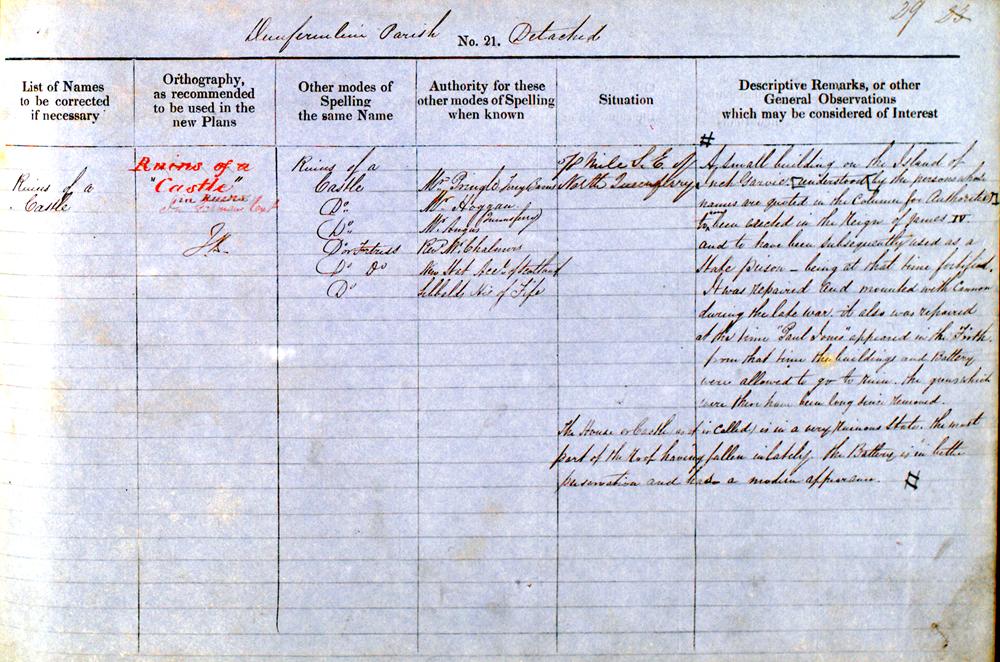 29 23
Dunfermline Parish No. 21. Detached
List of Names to be corrected if necessary
Orthography, as recommended to be used in the new Plans
Other modes of Spelling the same Name
Authority for these other modes of Spelling when known
Situation
Descriptive Remarks, or other General Observations which may be considered of Interest
Ruins of a
Castle
Ruins of a
"Castle"
in Ruins
Ruins of a
Castle
Do.
Do.
Do. or Fortress
Do. Do
Do.
Mr. Pringle
Mr. Hoggan
Mr. Angus (Queensferry)
Revd. Mr. Chalmers
New Stat. Acct. of Scotland
Sibbalds His of Fife
Mile S.E. of
North Queensferry
#
A small building on the Island of
Inch Garvie [understood by the persons whose
names are quoted in the Column for Authorities]
to been erected in the Reign of James IV
and to have been subsequently used as a
State Prison - being at that time fortified.
It was repaired and mounted with Cannon
during the late war. it also was repaired
at the time "Paul Jones" appeared in the Firth.
from that time the buildings and Battery
were allowed to go to ruin. the guns which
were there have been long since removed.
The House or Castle (as it is called) is in a very ruinous State. the most
part of the Roof having fallen in lately. the Battery is in better
preservation and has a modern appearance. #